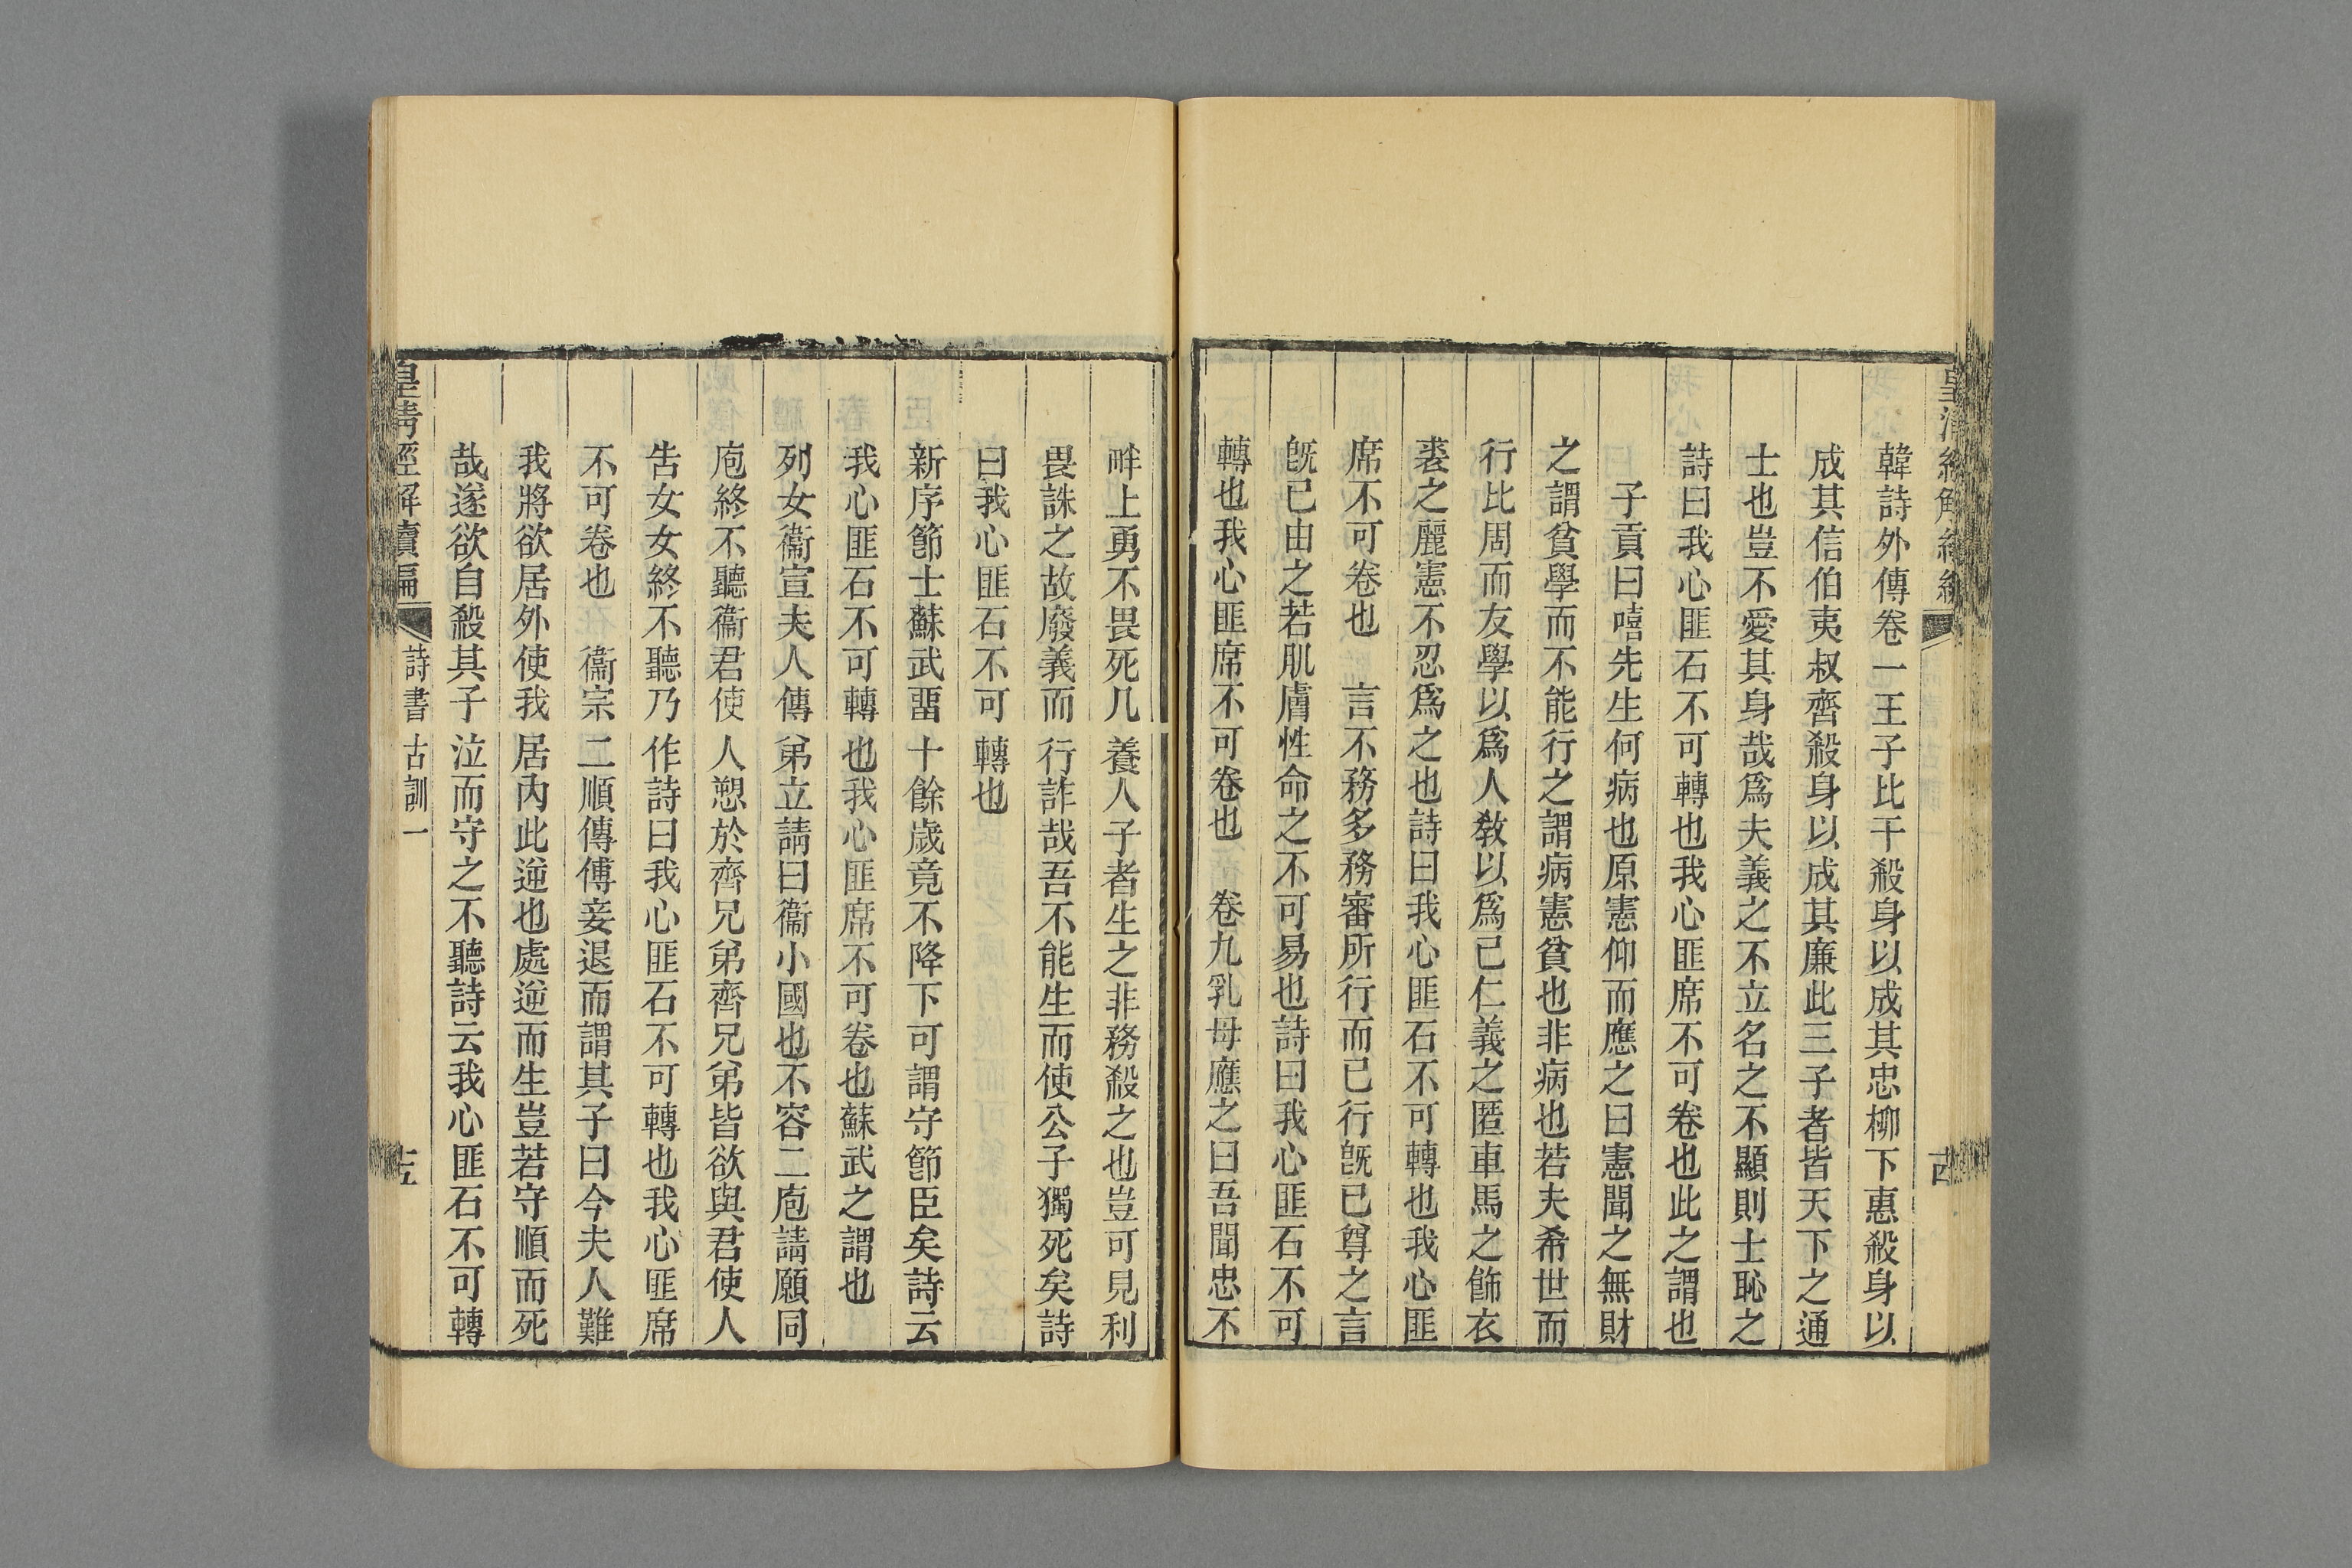 韓詩外傳卷一王子比干殺身以成其忠柳下惠殺身以
成其信伯夷叔齊殺身以成其廉此三子者皆天下之通
士也豈不愛其身哉爲夫義之不立名之不顯則士恥之
詩曰我心匪石不可轉也我心匪席不可卷也此之謂也
子貢曰嘻先生何病也原憲仰而應之曰憲聞之無財
之謂貧學而不能行之謂病憲貧也非病也若夫希世而
行比周而友學以爲人敎以爲己仁義之匿車馬之飾衣
裘之麗憲不忍爲之也詩曰我心匪石不可轉也我心匪
席不可卷也　言不務多務審所行而已行旣已尊之言
旣已由之若肌膚性命之不可易也詩曰我心匪石不可
轉也我心匪席不可卷也　卷九乳母應之曰吾聞忠不
畔上勇不畏死凡養人子者生之非務殺之也豈可見利
畏誅之故廢義而行詐哉吾不能生而使公子獨死矣詩
曰我心匪石不可轉也
新序節士蘇武畱十餘歲竟不降下可謂守節臣矣詩云
我心匪石不可轉也我心匪席不可卷也蘇武之謂也
列女衞宣夫人傳弟立請曰衞小國也不容二庖請願同
庖終不聽衞君使人愬於齊兄弟齊兄弟皆欲與君使人
告女女終不聽乃作詩曰我心匪石不可轉也我心匪席
不可卷也　衞宗二順傳傅妾退而謂其子曰今夫人難
我將欲居外使我居內此逆也處逆而生豈若守順而死
哉遂欲自殺其子泣而守之不聽詩云我心匪石不可轉
皇淸經解續編　詩書古訓一　十五